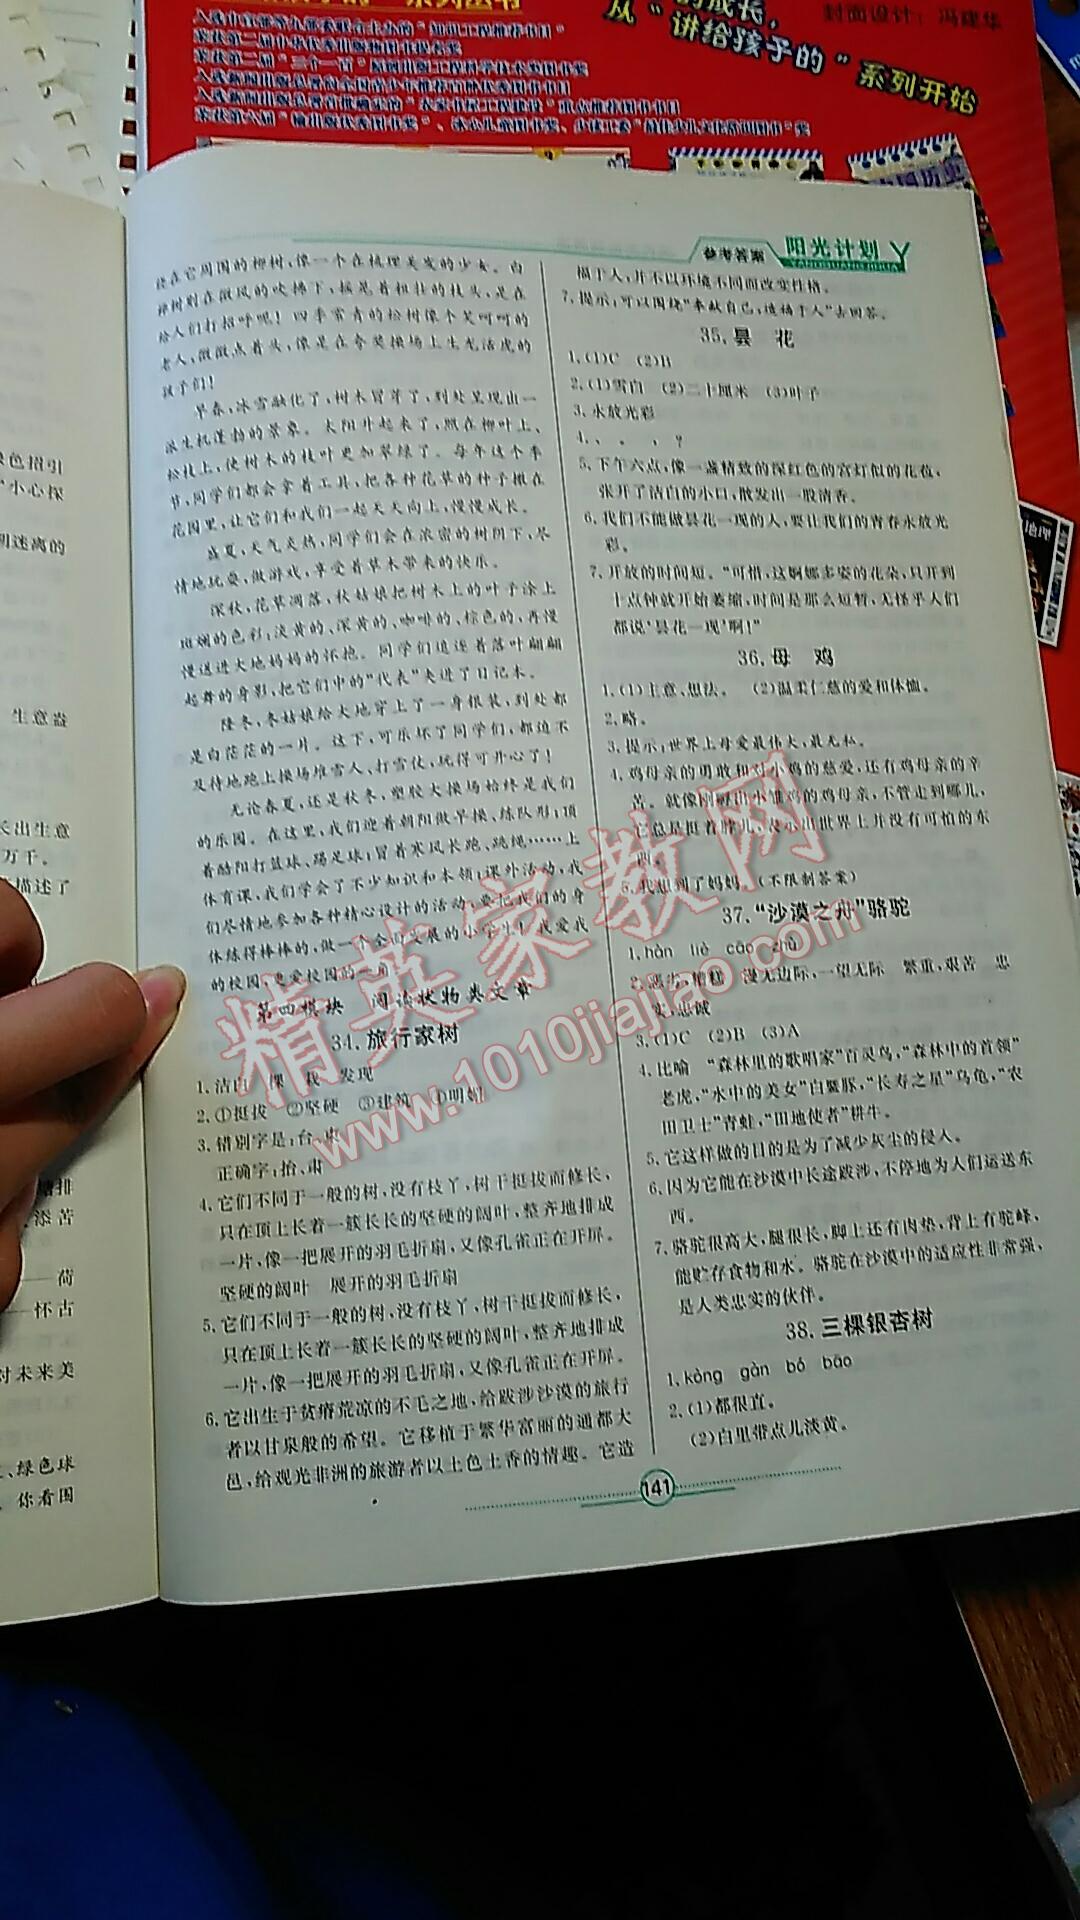 入选中宣部等九部委联合主办的"知识工程推荐书目"
封面设计:冯建华
从"讲给孩子的"系列开始
参考答案 阳光计划
绕在它周围的柳树,像一个在梳理美发的少女。白
柳树则在微风的吹拂下,摇晃着粗壮的枝头,是在
给人们打招呼呢!四季常青的松树像个笑呵呵的
老人,微微点着头,像是在夸奖操场上生龙活虎的
孩子们!
早春,冰雪融化了,树木冒芽了,到处呈现出一
派生机蓬勃的景象。太阳升起来了,照在柳叶上、
松枝上,使树木的枝叶更加翠绿了。每年这个季
节,同学们都会拿着工具,把各种花草的种子撒在
花园里,让它们和我们一起天天向上,慢慢成长。
盛夏,天气炎热,同学们会在浓密的树阴下,尽
情地玩耍,做游戏,享受着草木带来的快乐。
深秋,花草凋落,秋姑娘把树木上的叶子涂上
斑斓的色彩:淡黄的、深黄的、咖啡的、棕色的,再慢
慢送进大地妈妈的怀抱。同学们追逐着落叶翩翩
起舞的身影,把它们中的"代表"夹进了日记本。
隆冬,冬姑娘给大地穿上了一身银装,到处都
是白茫茫的一片。这下,可乐坏了同学们,都迫不
及待地跑上操场堆雪人、打雪仗,玩得可开心了!
无论春夏,还是秋冬,塑胶大操场始终是我们
的乐园。在这里,我们迎着朝阳做早操、练队形;顶
着酷阳打篮球、踢足球;冒着寒风长跑、跳绳……上
体育课,我们学会了不少知识和本领;课外活动,我
们尽情地参加各种精心设计的活动;要把我们的身
体练得棒棒的,做一个全面发展的小学生!我爱我
的校园,更爱校园的一角
第四模块 阅读状物类文章
34.旅行家树
1.洁白 棵 栽 发现
2.①挺拔 ②坚硬 ③建筑 ④明媚
3.错别字是:台、束
正确字:抬、肃
4.它们不同于一般的树,没有枝丫,树干挺拔而修长,
只在顶上长着一簇长长的坚硬的阔叶,整齐地排成
一片,像一把展开的羽毛折扇,又像孔雀正在开屏。
坚硬的阔叶 展开的羽毛折扇
5.它们不同于一般的树,没有枝丫,树干挺拔而修长,
只在顶上长着一簇长长的坚硬的阔叶,整齐地排成
一片,像一把展开的羽毛折扇,又像孔雀正在开屏。
6.它出生于贫瘠荒凉的不毛之地,给跋涉沙漠的旅行
者以甘泉般的希望。它移植于繁华富丽的通都大
邑,给观光非洲的旅游者以土色土香的情趣。它造
福于人,并不以环境不同而改变性格。
7.提示:可以围绕"奉献自己,造福于人"去回答。
35.昙 花
1.(1)C (2)B
2.(1)雪白 (2)二十厘米 (3)叶子
3.永放光彩
4.、 。 , ?
5.下午六点,像一盏精致的深红色的宫灯似的花苞,
张开了洁白的小口,散发出一股清香。
6.我们不能做昙花一现的人,要让我们的青春永放光
彩。
7.开放的时间短。"可惜,这婀娜多姿的花朵,只开到
十点钟就开始萎缩,时间是那么短暂,无怪乎人们
都说'昙花一现'啊!"
36.母 鸡
1.(1)主意、想法。 (2)温柔仁慈的爱和体恤。
2.略。
3.提示:世界上母爱最伟大,最无私。
4.鸡母亲的勇敢和对小鸡的慈爱,还有鸡母亲的辛
苦。就像刚孵出小雏鸡的鸡母亲,不管走到哪儿,
它总是挺着脖儿,表示出世界上并没有可怕的东
西。
5.我想到了妈妈。(不限制答案)
37."沙漠之舟"骆驼
1.hàn liè cāo zhù
2.恶劣,糟糕 漫无边际,一望无际 繁重,艰苦 忠
实,忠诚
3.(1)C (2)B (3)A
4.比喻 "森林里的歌唱家"百灵鸟,"森林中的首领"
老虎,"水中的美女"白鱀豚,"长寿之星"乌龟,"农
田卫士"青蛙,"田地使者"耕牛。
5.它这样做的目的是为了减少灰尘的侵入。
6.因为它能在沙漠中长途跋涉,不停地为人们运送东
西。
7.骆驼很高大,腿很长,脚上还有肉垫,背上有驼峰,
能贮存食物和水。骆驼在沙漠中的适应性非常强,
是人类忠实的伙伴。
38.三棵银杏树
1.kòng gàn bó bāo
2.(1)都很直。
(2)白里带点儿淡黄。
141
精英家教网
www.1010jiajiao.com
绿色招引
"小心探
朔迷离的
生意盎
长出生意
万千。
描述了
排
添苦
——荷
怀古
对未来美
、绿色球
你看国